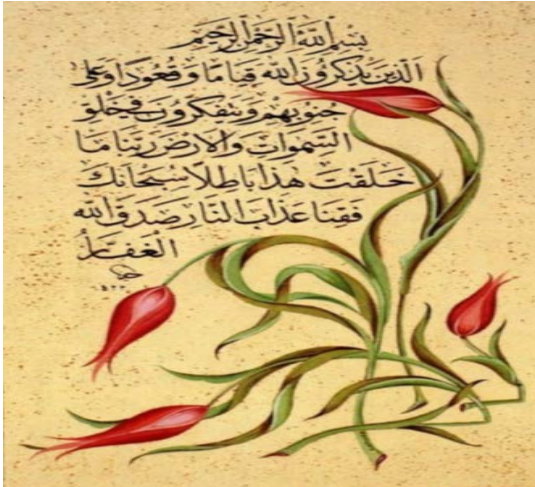 بِسْمِ اللهِ الرَّحْمٰنِ الرَّحِيْمِ
الَّذِينَ يَذْكُرُونَ اللهَ قِيَامًا وَقُعُودًا وَعَلَى
جُنُوبِهِمْ وَيَتَفَكَّرُونَ فِي خَلْقِ
السَّمٰوَاتِ وَالْاَرْضِ رَبَّنَا مَا
خَلَقْتَ هٰذَا بَاطِلًا سُبْحَانَكَ
فَقِنَا عَذَابَ النَّارِ صَدَقَ اللهُ
الْغَفَّارُ